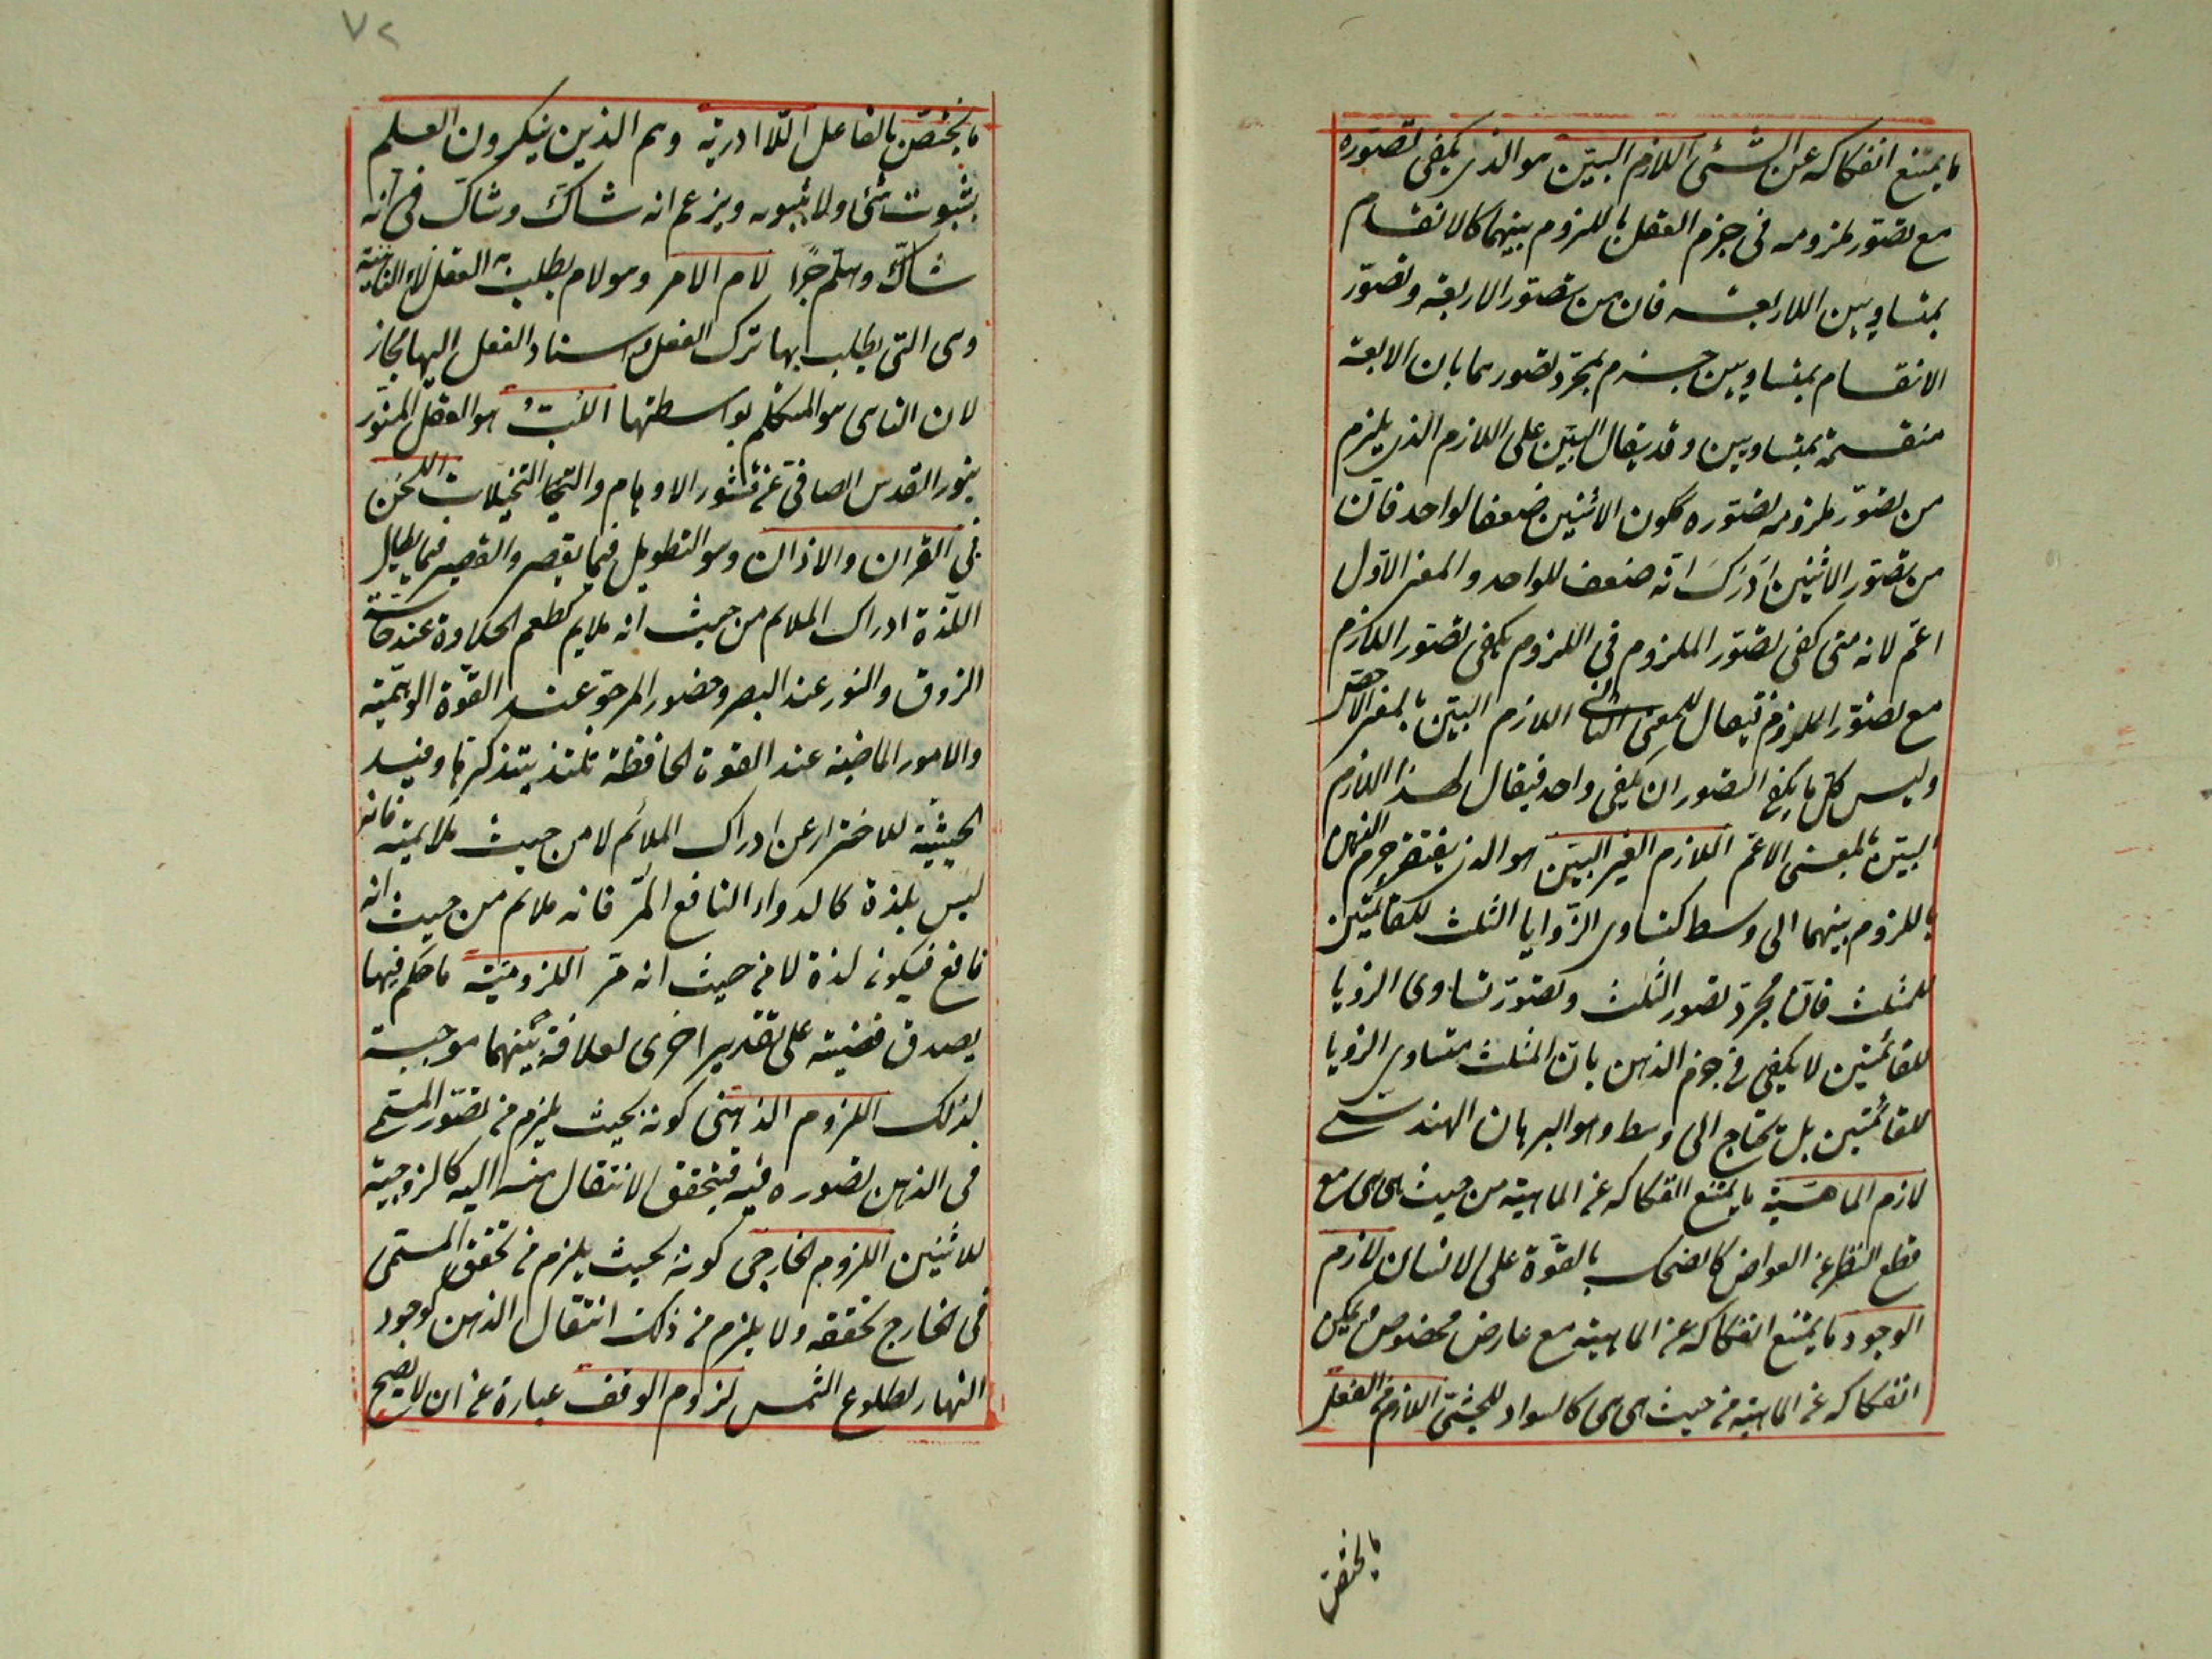 ما يمتنع انفكاكه عن الشئ اللازم البيّن هو الذى يكفى تصوّره
مع تصوّر ملزومه فى جزم العقل باللزوم بينهما كالانقسام
بمتساويين للاربعة فان من تصوّر الاربعة وتصوّر
الانقسام بمتساويين جزم بمجرّد تصورهما بان الاربعة
منقسمة بمتساويين وقد يقال البيّن على اللازم الذى يلزم
من تصوّر ملزومه تصوّره ككون الاثنين ضعفا لواحد فانّ
من تصوّر الاثنين ادرك انّه ضعف للواحد والمعنى الاوّل
اعمّ لانه متى كفى تصوّر الملزوم فى اللزوم يكفى تصوّر اللازم
مع تصوّر الملزوم فيقال للمعنى الثانى اللازم البيّن بالمعنى الاخصّ
وليس كلّ ما يكفى التصوران يكفى واحد فيقال لهذا اللازم
البيّن بالمعنى الاعمّ اللازم الغير البيّن هو الذى يفتقر جزم الذهن
باللزوم بينهما الى وسط كتساوى الزّوايا الثلث للقائمتين
للمثلث فانّ مجرّد تصور المثلث وتصوّر تساوى الزوايا
للقائمتين لا يكفى فى جزم الذهن بانّ المثلث متساوى الزوايا
للقائمتين بل يحتاج الى وسط وهو البرهان الهندسى
لازم الماهيّة ما يمتنع انفكاكه عن الماهية من حيث هى هى مع
قطع النظر عن العوارض كالضحك بالقوّة على الانسان لازم
الوجود ما يمتنع انفكاكه عن الماهية مع عارض مخصوص ويمكن
انفكاكه عن الماهية من حيث هى هى كالسواد للحبشىّ اللازم من الفعل
ما يختصّ
٧٢
ما يختصّ بالفاعل اللّا ادرية وهم الذين ينكرون العلم
بثبوت شئ ولا ثبوته ويزعم انه شاكّ وشاكّ فى انّه
شاكّ وهلمّ جرّا لام الامر وهو لام يطلب به الفعل لاء الناهية
وهى التى يطلب بها ترك الفعل واسناد الفعل اليها مجاز
لان الناهى هو المتكلم بواسطتها اللبّ هو العقل المنوّر
بنور القدس الصافى عن قشور الاوهام والتخيلات اللحن
فى القران والاذان وهو التطويل فيما يقصر والقصر فيما يطال
اللّذة ادراك الملايم من حيث انه ملايم كطعم الحلاوة عند حاسّة
الذوق والنور عند البصر وحضور المرجوّ عند القوّة الوهميّة
والامور الماضية عند القوة الحافظة تلتذ بتذكرها وقيد
الحيثيّة للاحتراز عن ادراك الملائم لا من حيث ملايمته فانه
ليس بلذة كالدواء النافع المرّ فانه ملايم من حيث انه
نافع فيكون لذة لا من حيث انه مرّ اللزوميّة ما حكم فيها
بصدق قضية على تقدير اخرى لعلاقة بينهما موجبة
لذلك اللزوم الذهنى كونه بحيث يلزم من تصوّر المسمّى
فى الذهن تصوره فيه فيتحقق الانتقال منه اليه كالزوجية
للاثنين اللزوم الخارجى كونه بحيث يلزم من تحقق المسمّى
فى الخارج تحققه ولا يلزم من ذلك انتقال الذهن كوجود
النهار لطلوع الشمس لزوم الوقف عبارة عن ان لا يصح